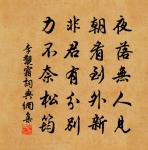 夜落無人見
朝看到处新
非君有分別
力不奈松筠
李覯霜詞典網集